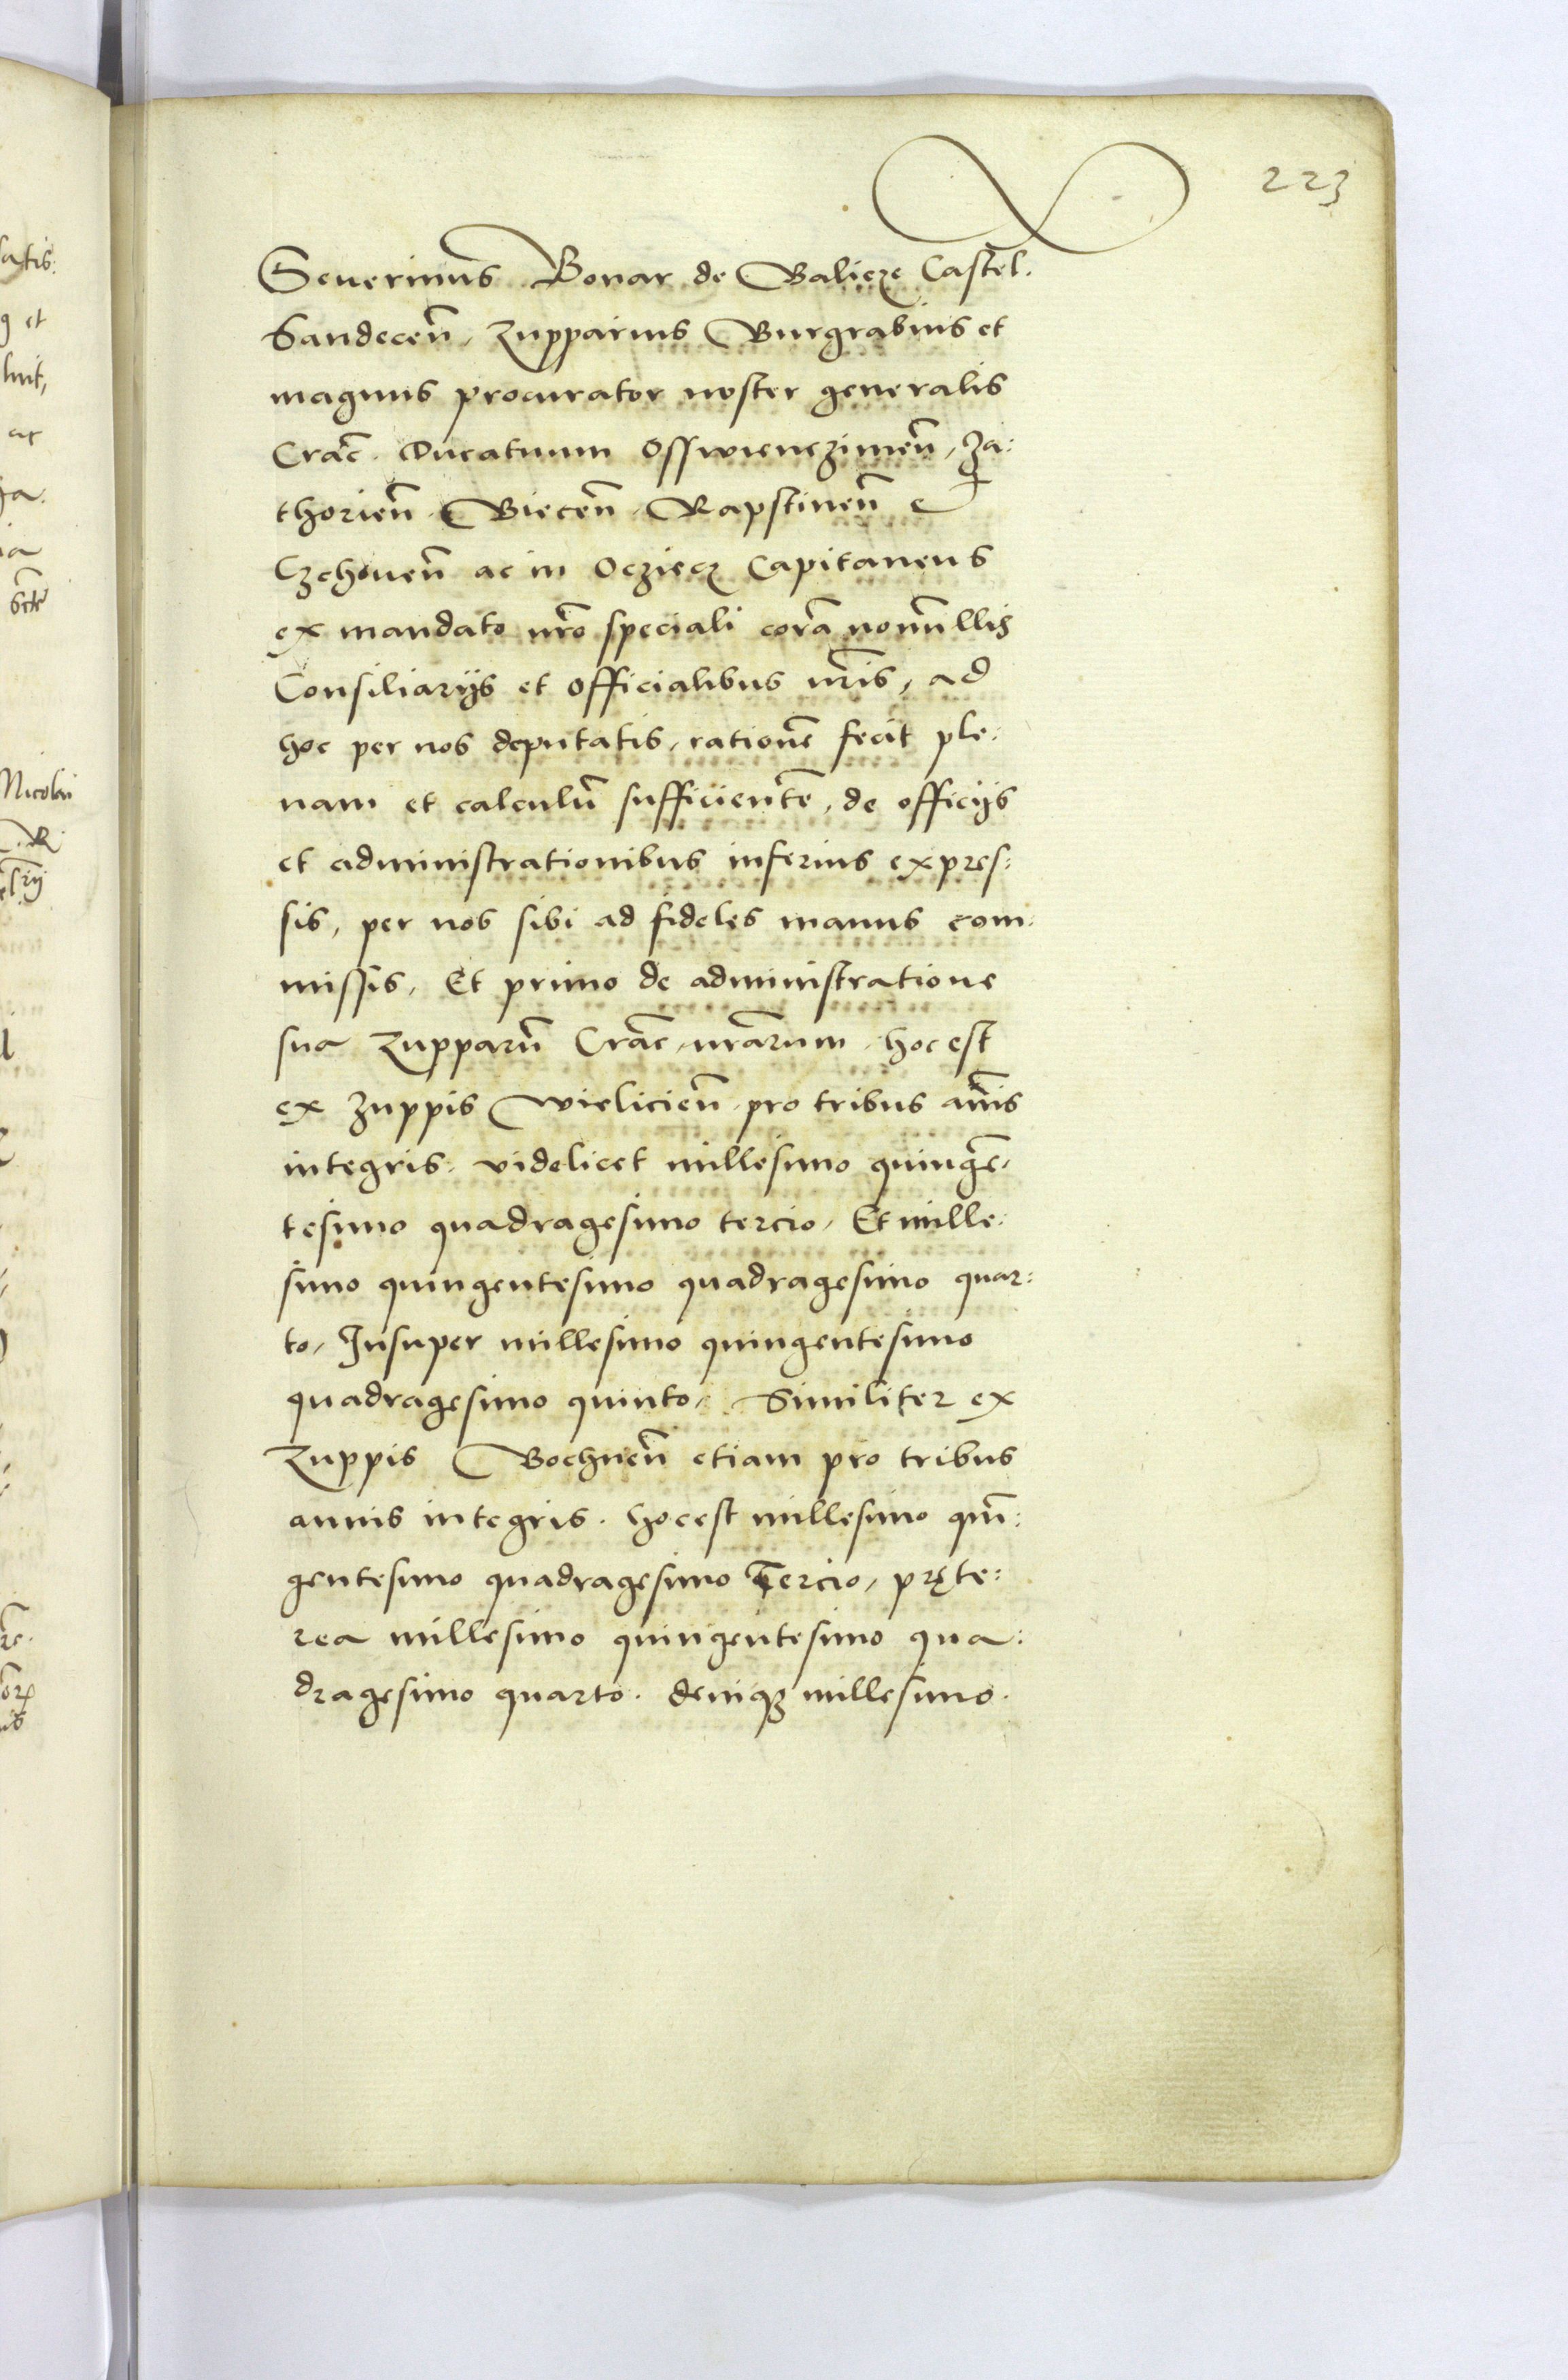 223
Seuerinus Bonar de Balicze Castel.
Sandeceñ, Zupparius Burgrabius et
magnus procurator noster generalis
Crac̃. Ducatuum Osswienczimeñ, Za:
thorieñ. Bieceñ. Rapstineñ et
Czchoueñ ac in Ocziecz Capitaneus
ex mandato nr̃o speciali corã nonnũllis
Consiliarijs et officialibus nr̃is, ad
hoc per nos deputatis, rationẽ fecit ple:
nam et calculũ sufficientẽ, de officijs
et administrationibus inferius expres:
sis, per nos sibi ad fideles manus com:
missis, Et primo de administratione
sua Zupparũ Crac̃, nr̃arum, hoc est
ex Zuppis Wielicieñ, pro tribus anñis
integris. videlicet millesimo quingẽ,
tesimo quadragesimo tercio, Et mille:
simo quingentesimo quadragesimo quar:
to, Insuper millesimo quingentesimo
quadragesimo quinto, Similiter ex
Zuppis Bochneñ etiam pro tribus
annis integris. hoc est millesimo quĩ:
gentesimo quadragesimo tercio, pręte:
rea millesimo quingentesimo qua:
dragesimo quarto. deniqꝫ millesimo.